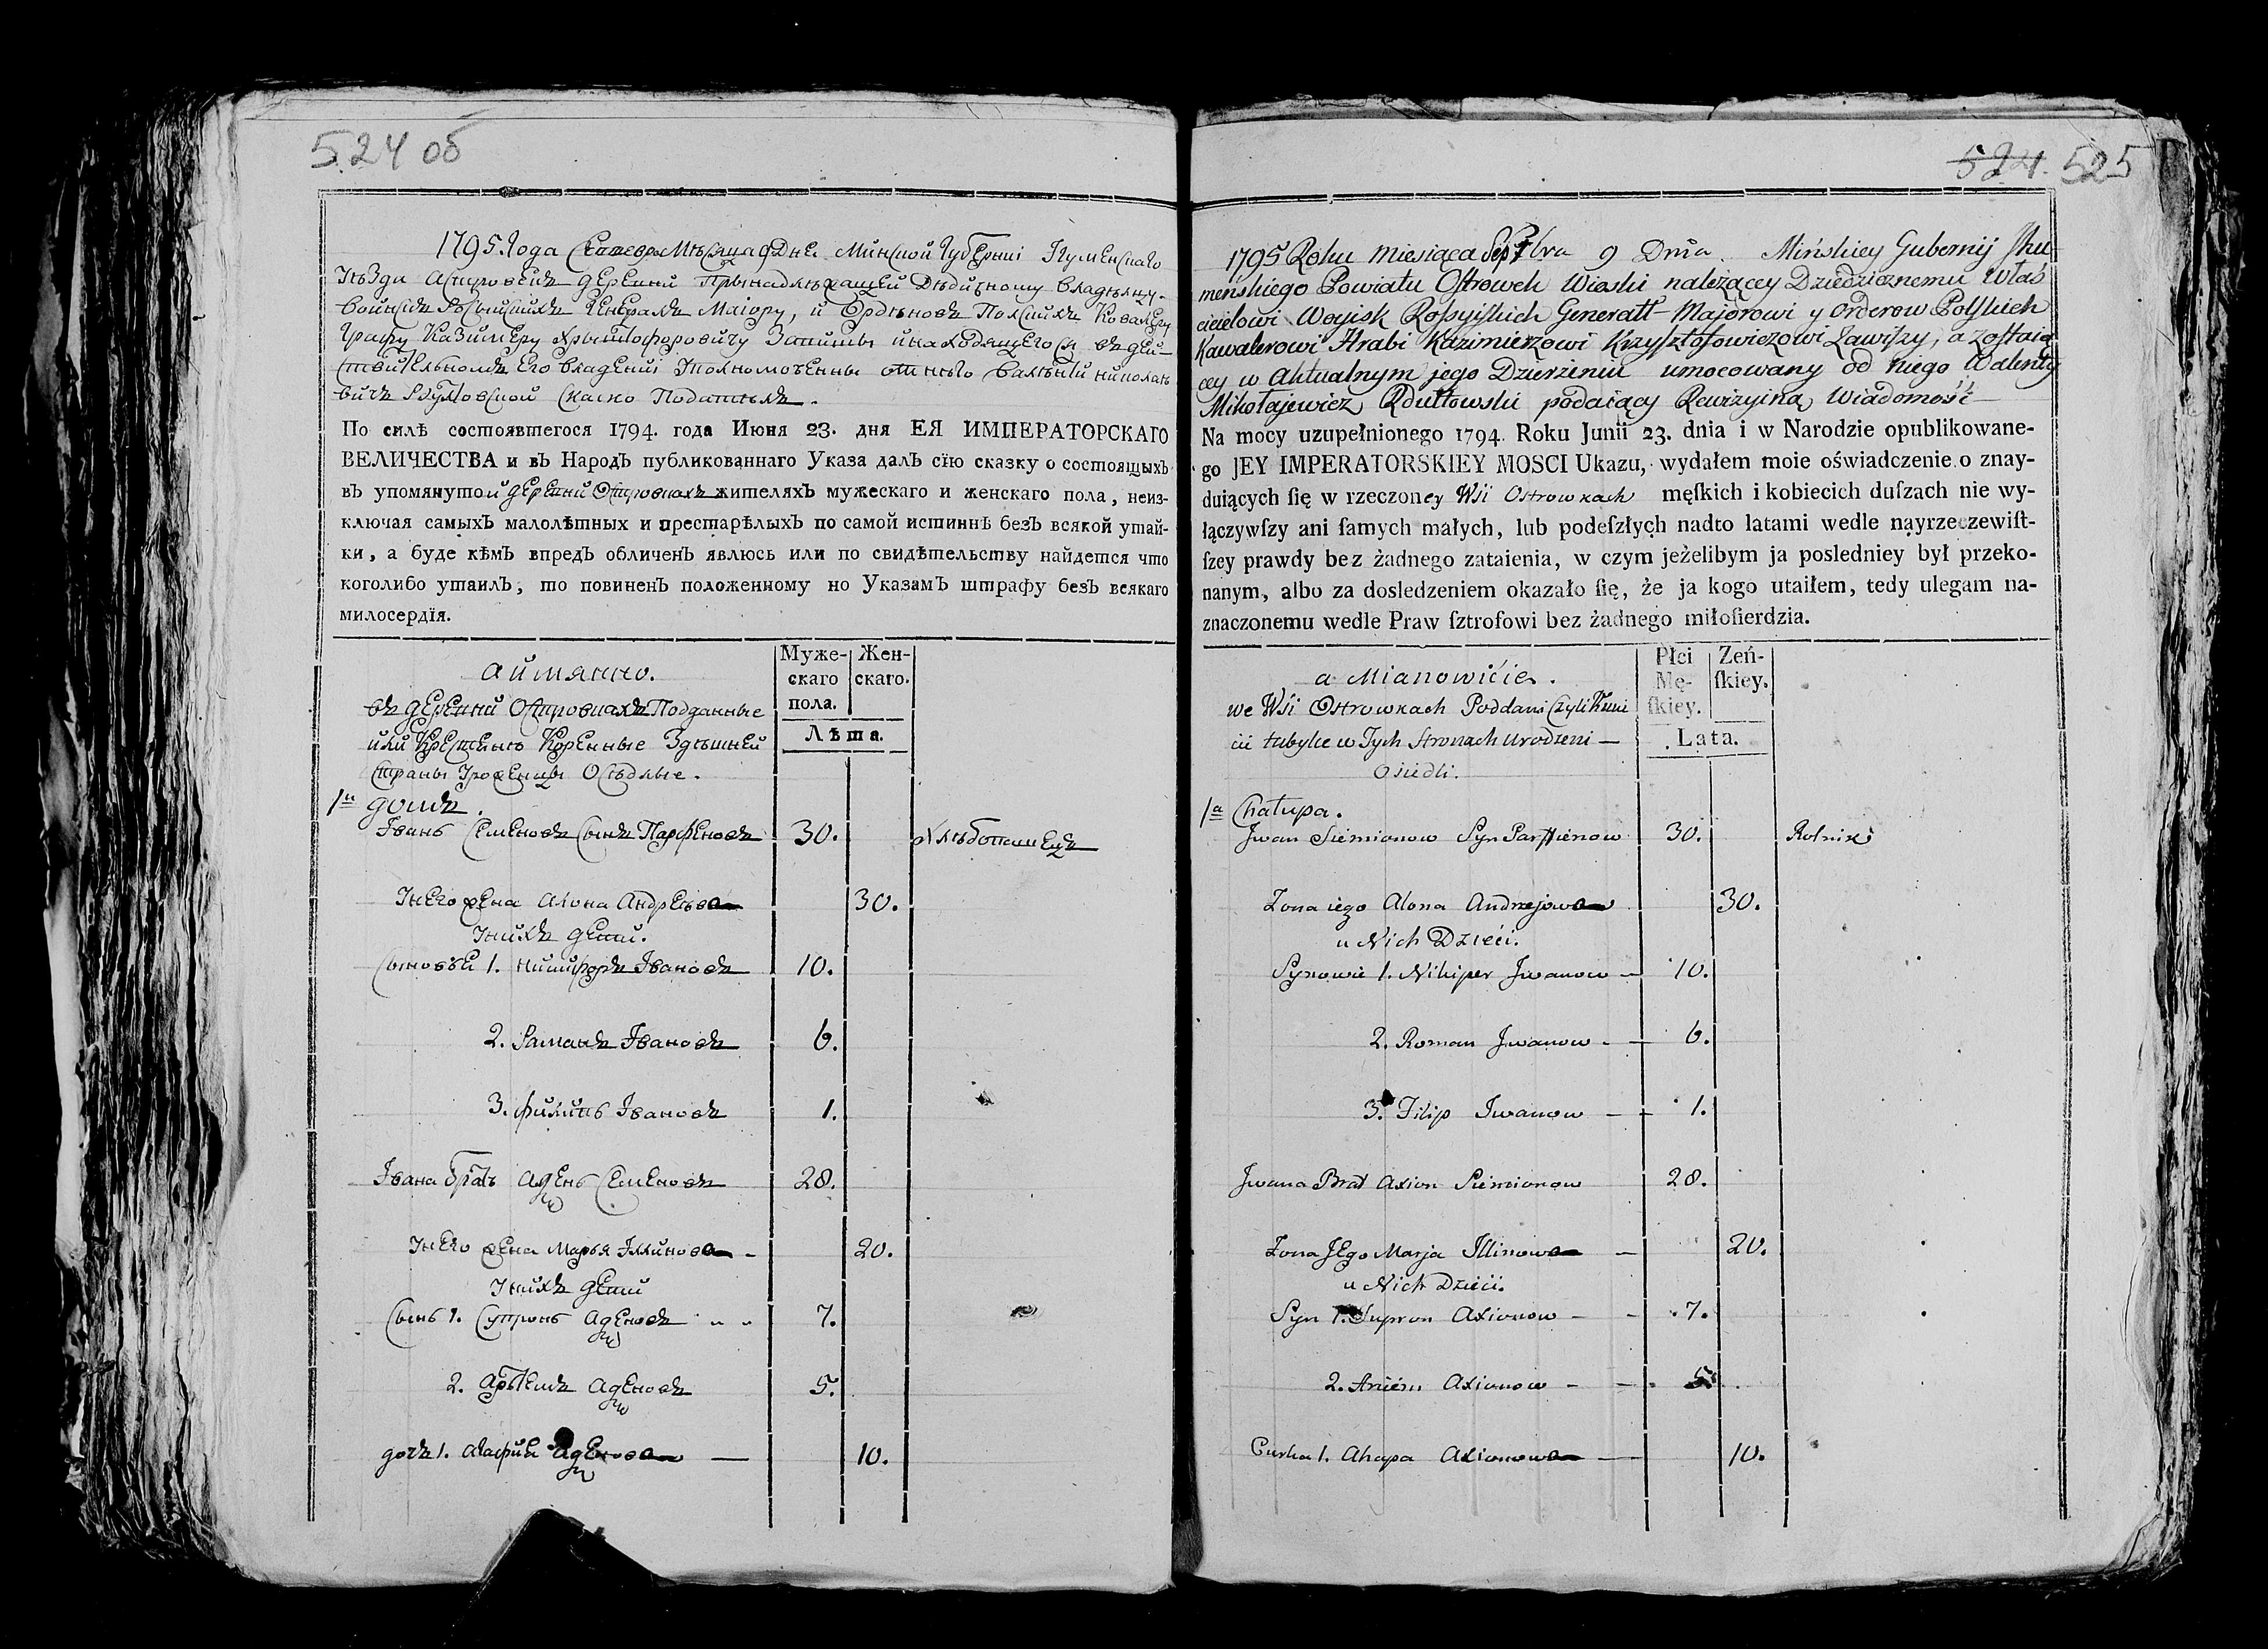 524 об
1795. Года Сентебра Мѣсяца 9 Дня Минской Губерніі Ігуменскаго
Уѣзда Аструовекъ деревни Прынадлѣжащей Дѣдичному Владѣлцу
Войскъ Генералъ Маіору, и Ордѣновъ Полскихъ Ковалеру
Графу Казимеру Хрыштофоровичу Завишы инаходящегося въ дей-
ствительномъ Его владениі Уполномоченны отнего Валѣнтій Николае
вичъ Рдултовской скаско Податтель.
По силѣ состоявшегося 1794. года Июня 23. дня ЕЯ ИМПЕРАТОРСКАГО
ВЕЛИЧЕСТВА и въ Народъ публикованнаго Указа далъ сїю сказку о состоящыхъ
въ упомянутой деревни Островкахъ жителяхъ мужескаго и женскаго пола, неиз-
ключая самыхъ малолѣтныхъ и престарѣлыхъ по самой истиннѣ безъ всякой утай-
ки, а буде кѣмъ впредъ обличенъ явлюсь или по свидѣтельству найдется что
коголибо утаилъ, то повиненъ положенному но Указамъ штрафу безъ всякаго
милосердїя.
аймянно.
Муже-
скаго
пола.
Жен-
скаго.
Лѣта.
въ деревни Островкахъ Подданные
или Крестьяне Коренные Здешней
страны Уроженцы Оседлые.
1й домъ.
Іванъ Семеновъ сынъ Парфеновъ 30. Хлѣбопашецъ
Унего жена Алона Андреева 30.
Унихъ дети.
Сыновьи 1. Никифоръ Івановъ 10.
2. Раманъ Івановъ 6.
3. Филипъ Івановъ 1.
Івана братъ Аѯенъ Семеновъ 28.
Унего жена Марья Іллинова 20.
Унихъ дети
Сынъ 1. Супронъ Аѯеновъ 7.
2. Артемъ Аѯеновъ 5.
дочь 1. Агафия Аѯенова 10.
524. 525
1795 Roku Miesiąca Septbra 9 Dnia. Mińskiey Gubernij Jhu
meńskiego Powiatu Ostrowek Wioski należącey Dziedzicznemu Właś
cicielowi Woyisk Rossyiskich Generałł-Majorowi y Orderow Polskich
Kawalerowi Hrabi Kazimierzowi Krzysztofowiczowi Zawiszy, a Zostaią
cey w aktualnym jego Dzierżeniu umocowany od niego Walenty
Mikołajewicz Rdułtowski podaiący Rewizyiną Wiadomość
Na mocy uzupełnionego 1794. Roku Junii 23. dnia i w Narodzie opublikowane-
go JEY IMPERATORSKIEY MOSCI Ukazu, wydałem moie oświadczenie o znay-
duiących ſię w rzeczoney Wsi Ostrowkach męſkich i kobiecich duſzach nie wy-
łączywſzy ani ſamych małych, lub podeſzłych nadto latami wedle nayrzeczewiſt-
ſzey prawdy bez żadnego zataienia, w czym jeżelibym ja posledniey był przeko-
nanym, albo za dosledzeniem okazało ſię, że ja kogo utaiłem, tedy ulegam na-
znaczonemu wedle Praw ſztrofowi bez żadnego miłoſierdzia.
a Mianowićie.
Płci
Mę-
ſkiey.
Zeń-
ſkiey.
Lata.
we Wśi Ostrowkach Poddani Czyli Kmi
cii tubylce w Tych Stronach urodzeni
Osiedli.
1a Chałupa.
Jwan Siemionow Syn Parfienow 30. Rolnik
Zona iego Alona Andrzejowa 30.
u Nich Dzieći.
Synowie 1. Nikiper Jwanow 10.
2. Roman Jwanow 6.
3. Filip Jwanow 1.
Jwana Brat Axion Siemionow 28.
Zona Jego Marja Illinowa 20.
u Nich Dzieci.
Syn 1. Supron Axionow 7.
2. Arciem Axionow 5.
Curka 1. Ahapa Axionowa 10.